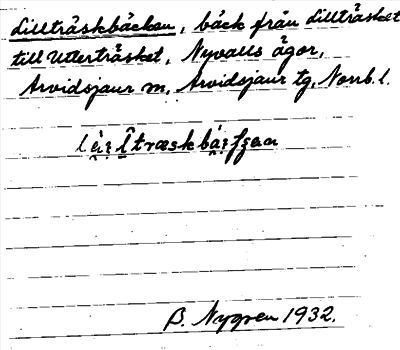 Lillträskbäcken, bäck från Lillträsket
till Utterträsket, Nyvalls ägor,
Arvidsjaur sn, Arvidsjaur tg, Norrb. l.
B. Nygren 1932.